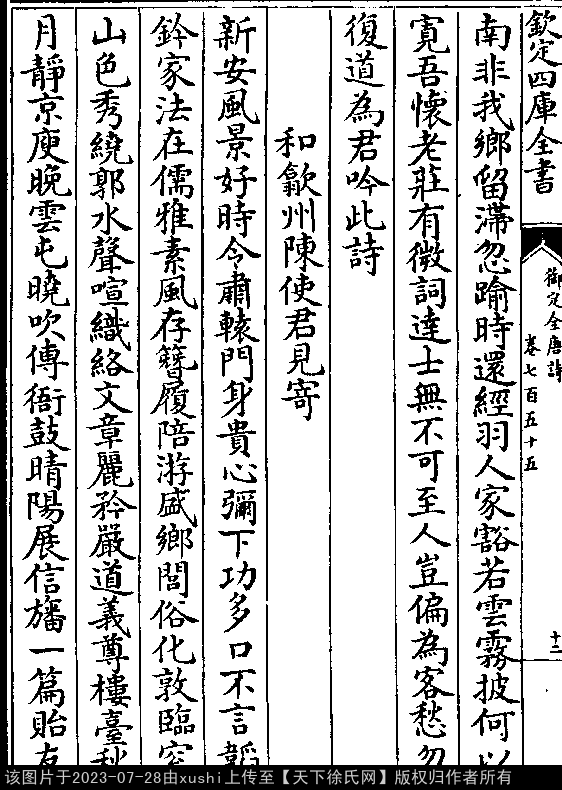 欽定四庫全書
御定全唐詩
卷七百五十五
十二
南非我鄉留滯忽踰時還經羽人家豁若雲霧披何以
寛吾懷老莊有微詞達士無不可至人豈偏為客愁勿
復道為君吟此詩
和歙州陳使君見寄
新安風景好時令肅轅門身貴心彌下功多口不言韜
鈐家法在儒雅素風存簪履陪游盛鄉閭俗化敦臨
山色秀繞郭水聲喧織絡文章麗矜嚴道義尊樓臺秋
月靜京庾晚雲屯曉吹傳衙鼓晴陽展信旛一篇貽友
该图片于2023-07-28由xushi上传至【天下徐氏网】版权归作者所有